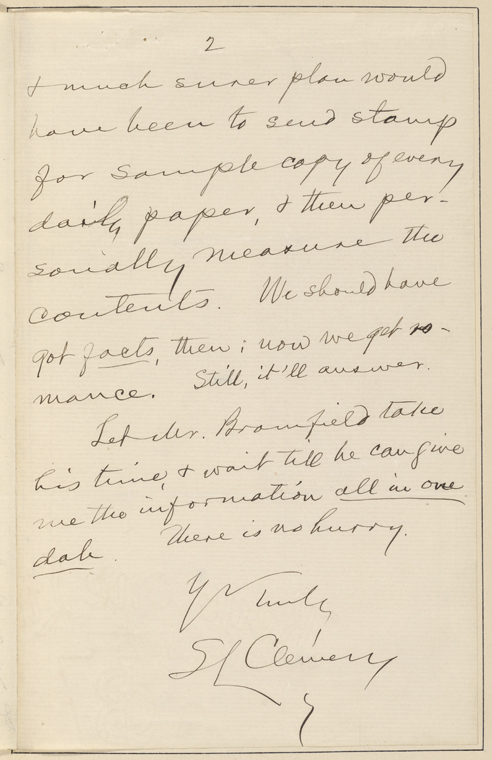 2
& much surer plan would
have been to send stamp
for sample copy of every
daily paper, & then per-
sonally measure the
contents. We should have
got facts, then; now we get ro-
mance. Still, it'll answer.
Let Mr. Bromfield take
his time, & wait till he can give
me the information all in one
dab. There is no hurry.
Yr Truly
SL Clemens